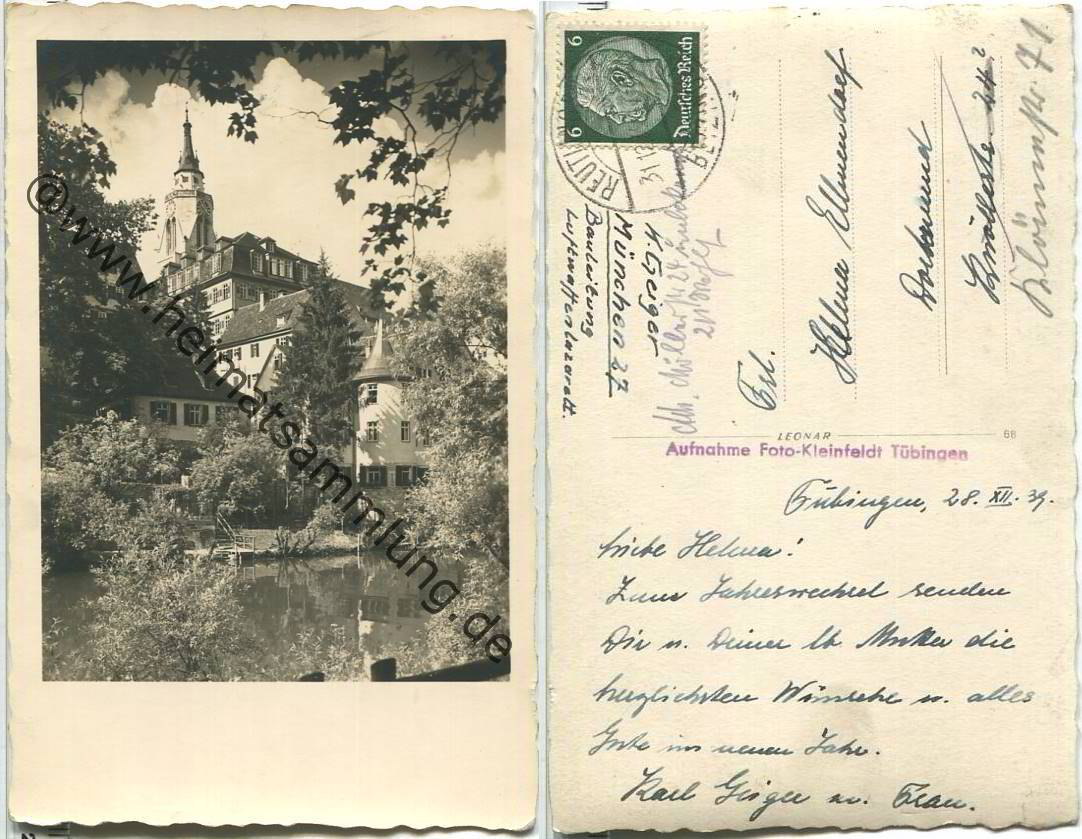 @www.heimatsammlung.de
6 6
Deutsches Reich
REUTLINGEN
31.12
K. Geiger
München 27
Bauleitung
Luftwaffenlazarett.
Frl.
Helma Ellmendorf
Dortmund
71
LEONAR
68
Aufnahme Foto-Kleinfeldt Tübingen
Tübingen, 28. XII. 39.
Liebe Helma!
Zum Jahreswechsel senden
Dir u. Deiner lb Mutter die
herzlichsten Wünsche u. alles
Gute im neuen Jahr.
Karl Geiger u. Frau.